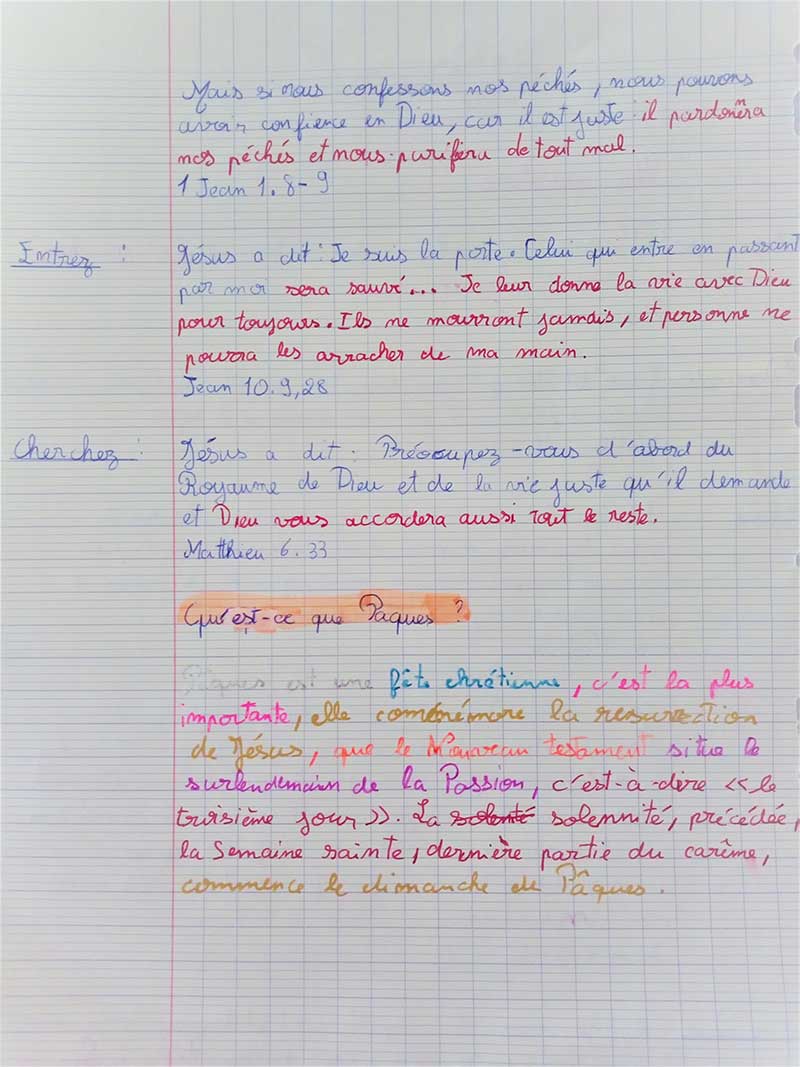 Mais si nous confessons nos péchés, nous pouvons
avoir confience en Dieu, car il est juste il pardonnera
nos péchés et nous purifira de tout mal.
1 Jean 1. 8-9
Entrez : Jésus a dit : Je suis la porte. Celui qui entre en passant
par moi sera sauvé... Je leur donne la vie avec Dieu
pour toujours. Ils ne mourront jamais, et personne ne
pourra les arracher de ma main.
Jean 10. 9,28
Cherchez : Jésus a dit : Préoccupez-vous d'abord du
Royaume de Dieu et de la vie juste qu'il demande
et Dieu vous accordera aussi tout le reste.
Matthieu 6. 33
Qu'est-ce que Paques ?
Pâques est une fête chrétienne, c'est la plus
importante, elle commémore la resurrection
de Jésus, que le Nouveau testament situe le
surlendemain de la Passion, c'est-à-dire << le
troisième jour >>. La solenté solennité, précédée,
la Semaine sainte, dernière partie du carême,
commence le dimanche de Pâques.